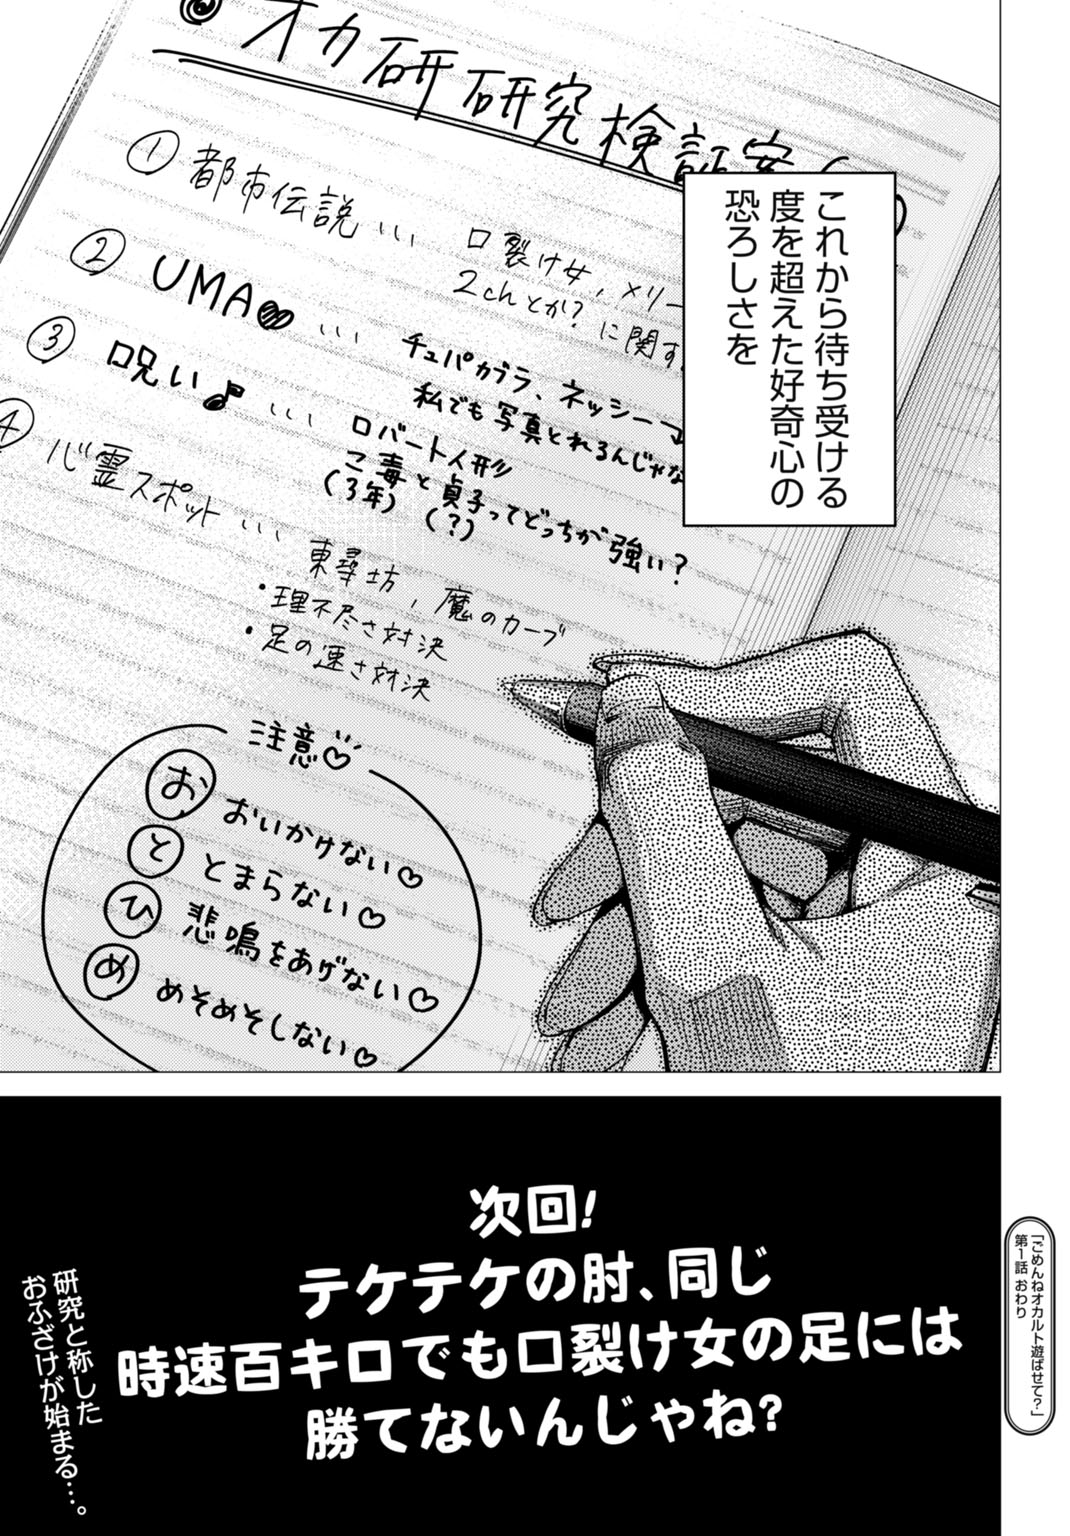 オカ研研究検証案
① 都市伝説… 口裂け女,メリー
2chとか?に関す
② UMA♥… チュパカブラ、ネッシー→
私でも写真とれるんじゃな
③ 呪い♪… ロバート人形
こ毒と貞子ってどっちが強い?
(3年)(?)
④ 心霊スポット… 東尋坊,魔のカーブ
・理不尽さ対決
・足の速さ対決
注意♡
お おいかけない♡
と とまらない♡
ひ 悲鳴をあげない♡
め めそめそしない♡
これから待ち受ける
度を超えた好奇心の
恐ろしさを
次回!
テケテケの肘、同じ
時速百キロでも口裂け女の足には
勝てないんじゃね?
研究と称した
おふざけが始まる…。
「ごめんねオカルト遊ばせて?」
第1話 おわり